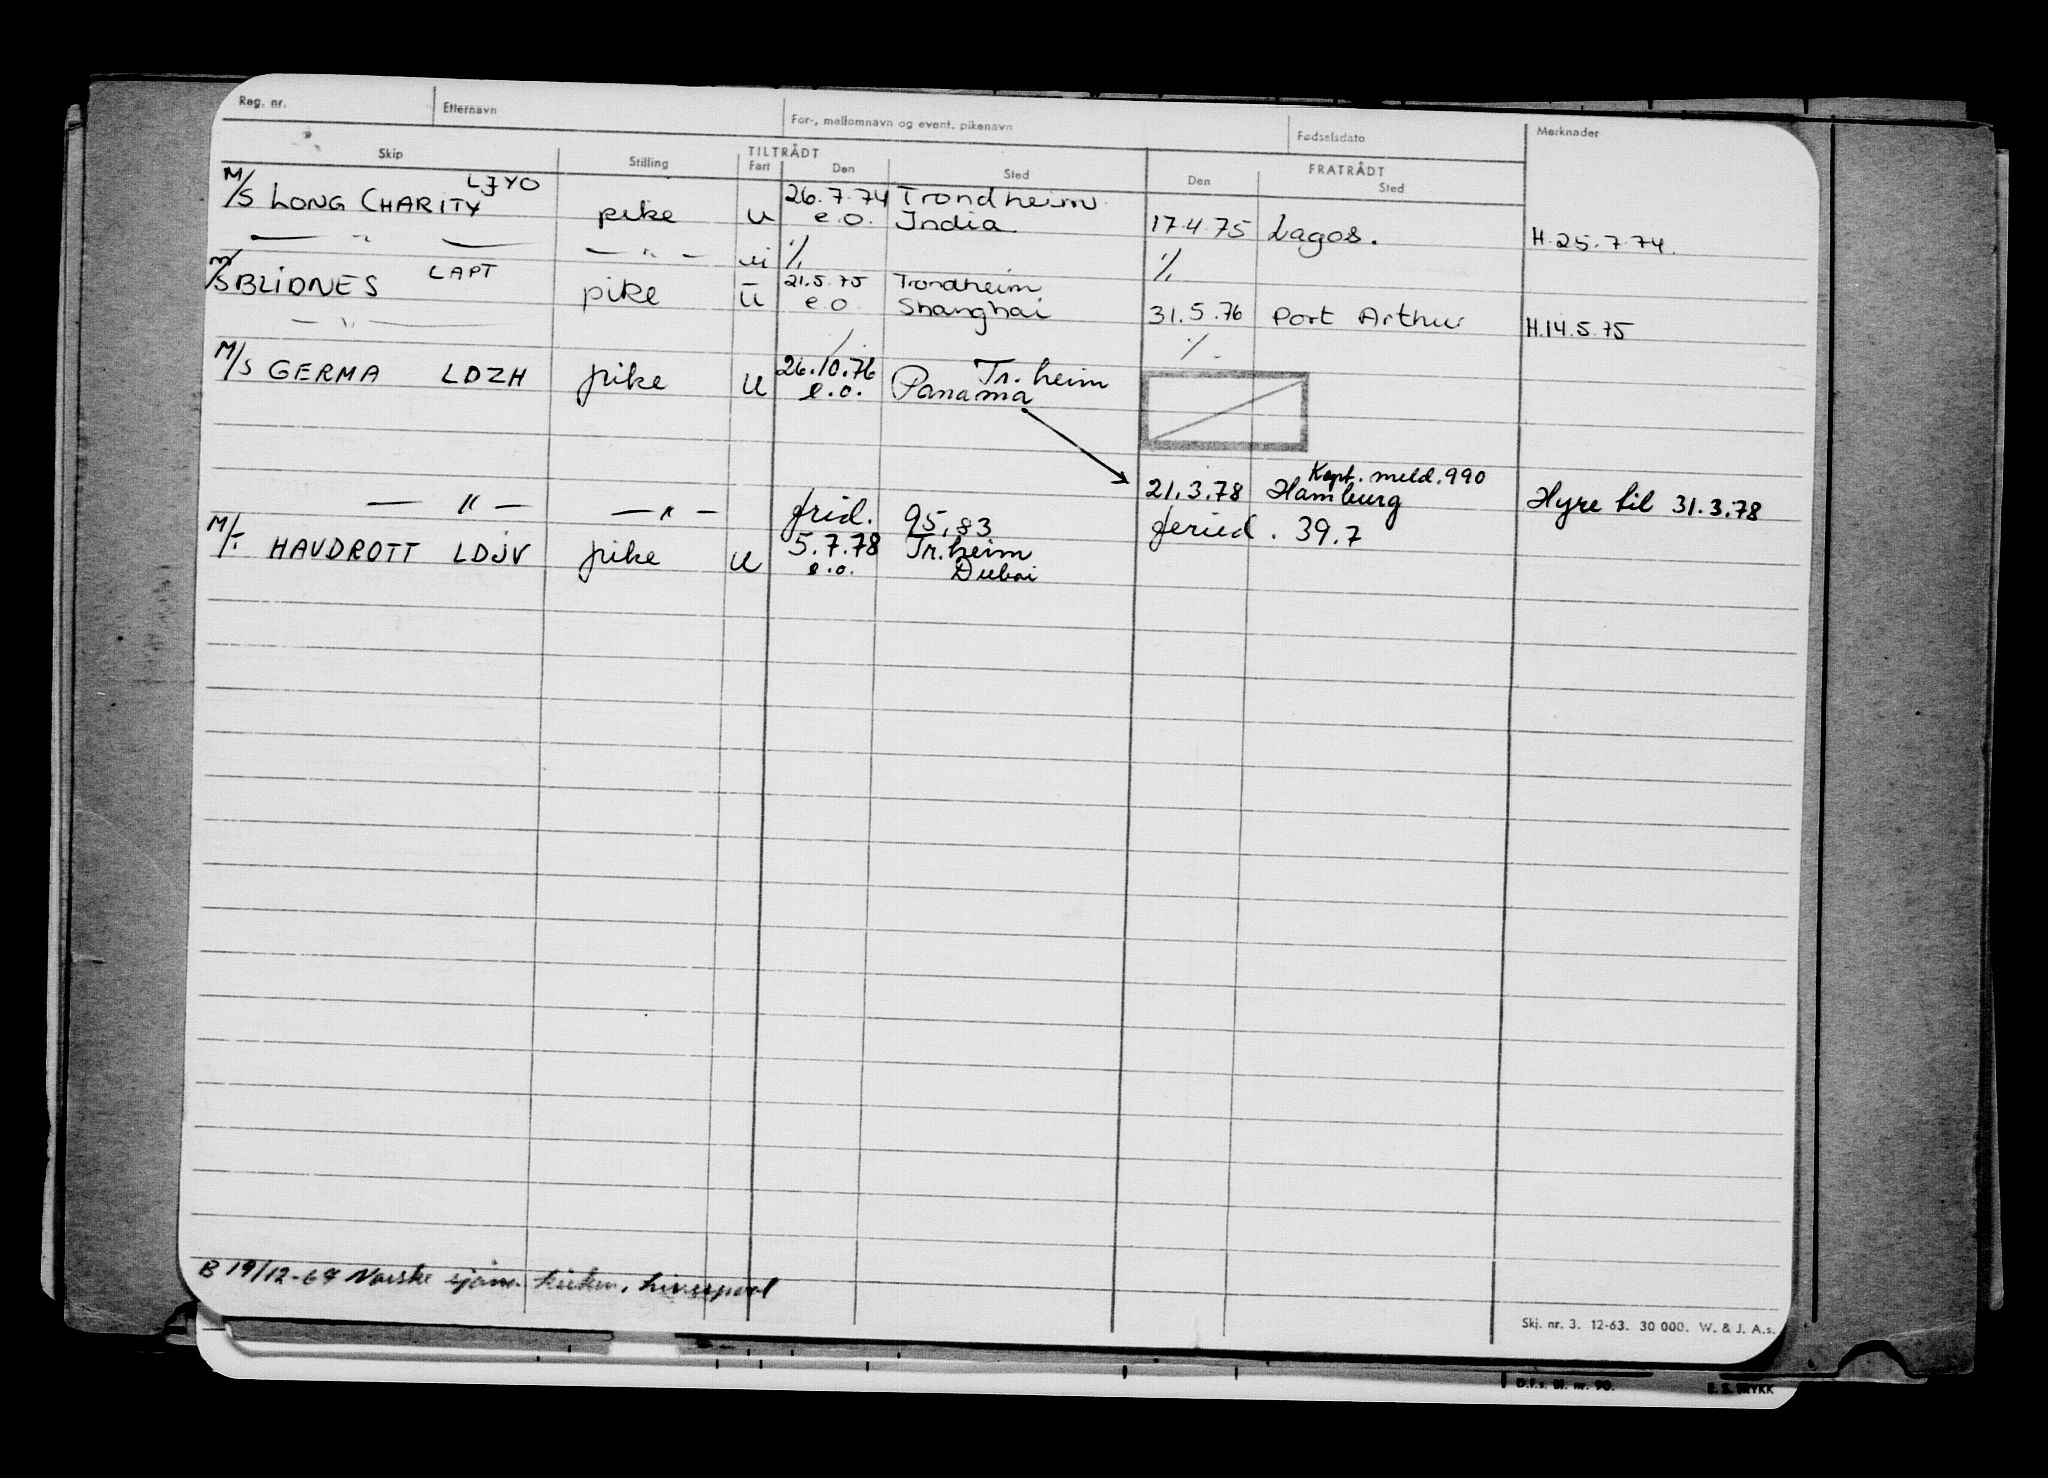 Reg. nr. Etternavn For-, mellomnavn og event. pikenavn Fødselsdato Merknader
Skip Stilling TILTRÅDT Fart Den Sted FRATRÅDT Den Sted
M/S LONG CHARITY LJYO pike u 26.7.74 Trondheim
e.o. India 17.4.75 Lagos. H.25.7.74.
— " — — " — ui % %
M/S BLIDNES LAPT pike u 21.5.75 Trondheim
e.o. Shanghai 31.5.76 Port Arthur H.14.5.75
— " — % %
M/S GERMA LDZH pike u 26.10.76 Tr.heim
e.o. Panama
Kapt. meld. 990
— " — — " — 21.3.78 Hamburg Hyre til 31.3.78
frid. 95,83 feried. 39.7
M/T HAVDROTT LDJV pike u 5.7.78 Tr.heim
e.o. Dubai
B 19/12-67 Norske sjøm. kirken, Liverpool
Skj. nr. 3. 12-63. 30 000. W. & J. A.s.
D.f.s. Bl. nr. 90.